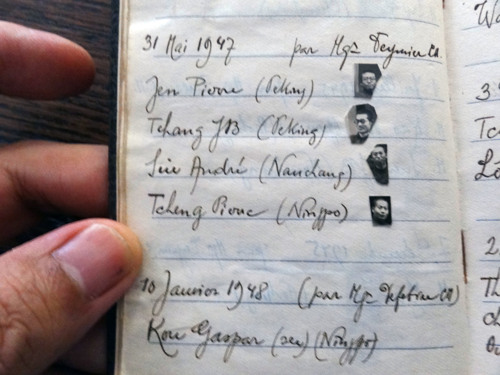 31 Mai 1947 par Mgr Deymier CM.
Jen Pierre (Peking)
Tchang JB (Peking)
André (Nanchang)
Tcheng Pierre (Ningpo)
10 Janvier 1948 (par Mgr Lefebvre CM)
Kou Gaspar (sen) (Ningpo)
W
3
Tc
Lé
2
Th